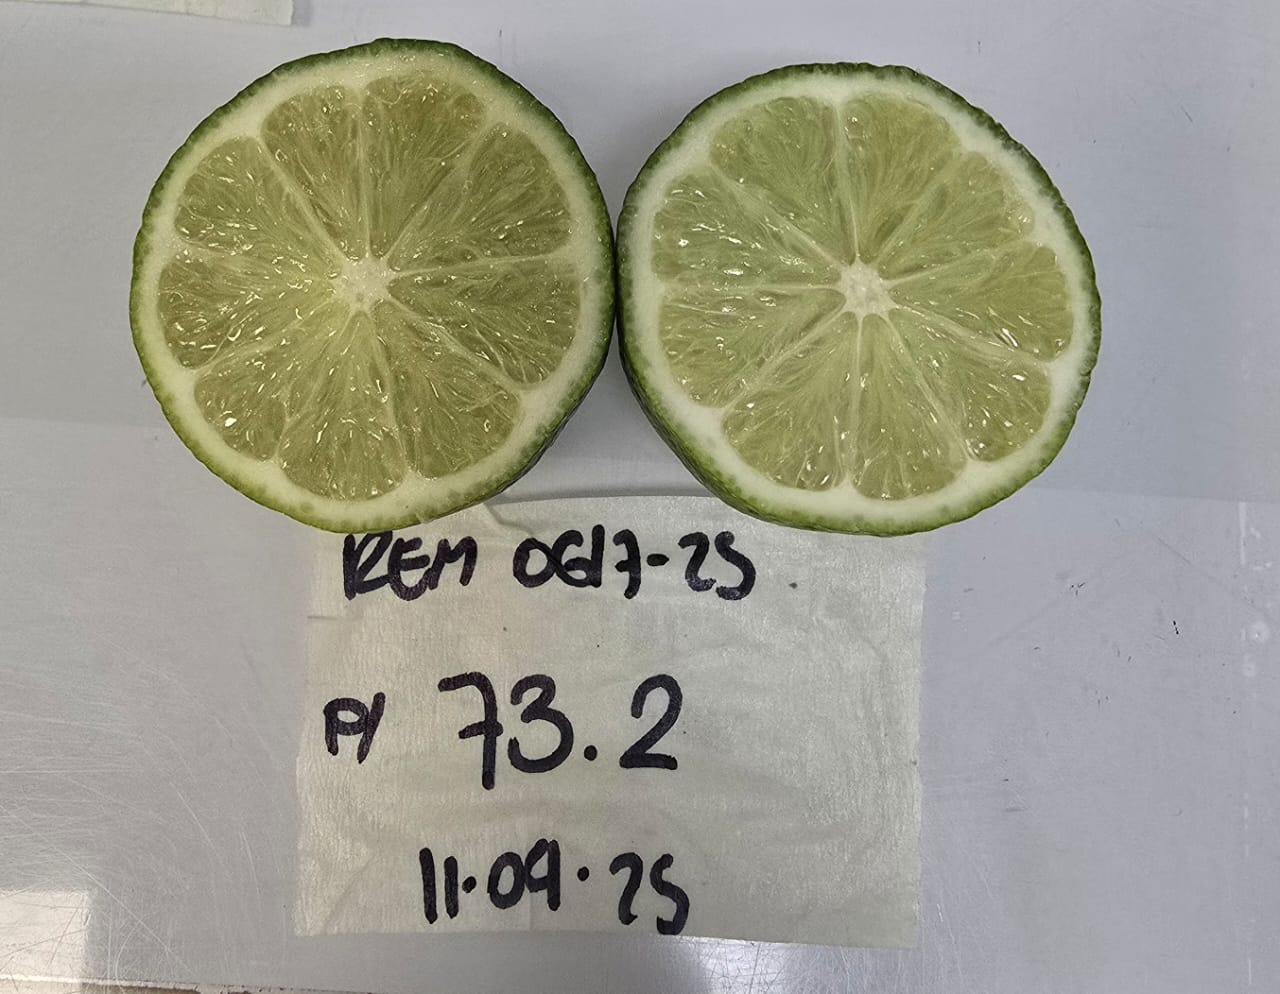 REM 0617-25
P/ 73.2
11.09.25